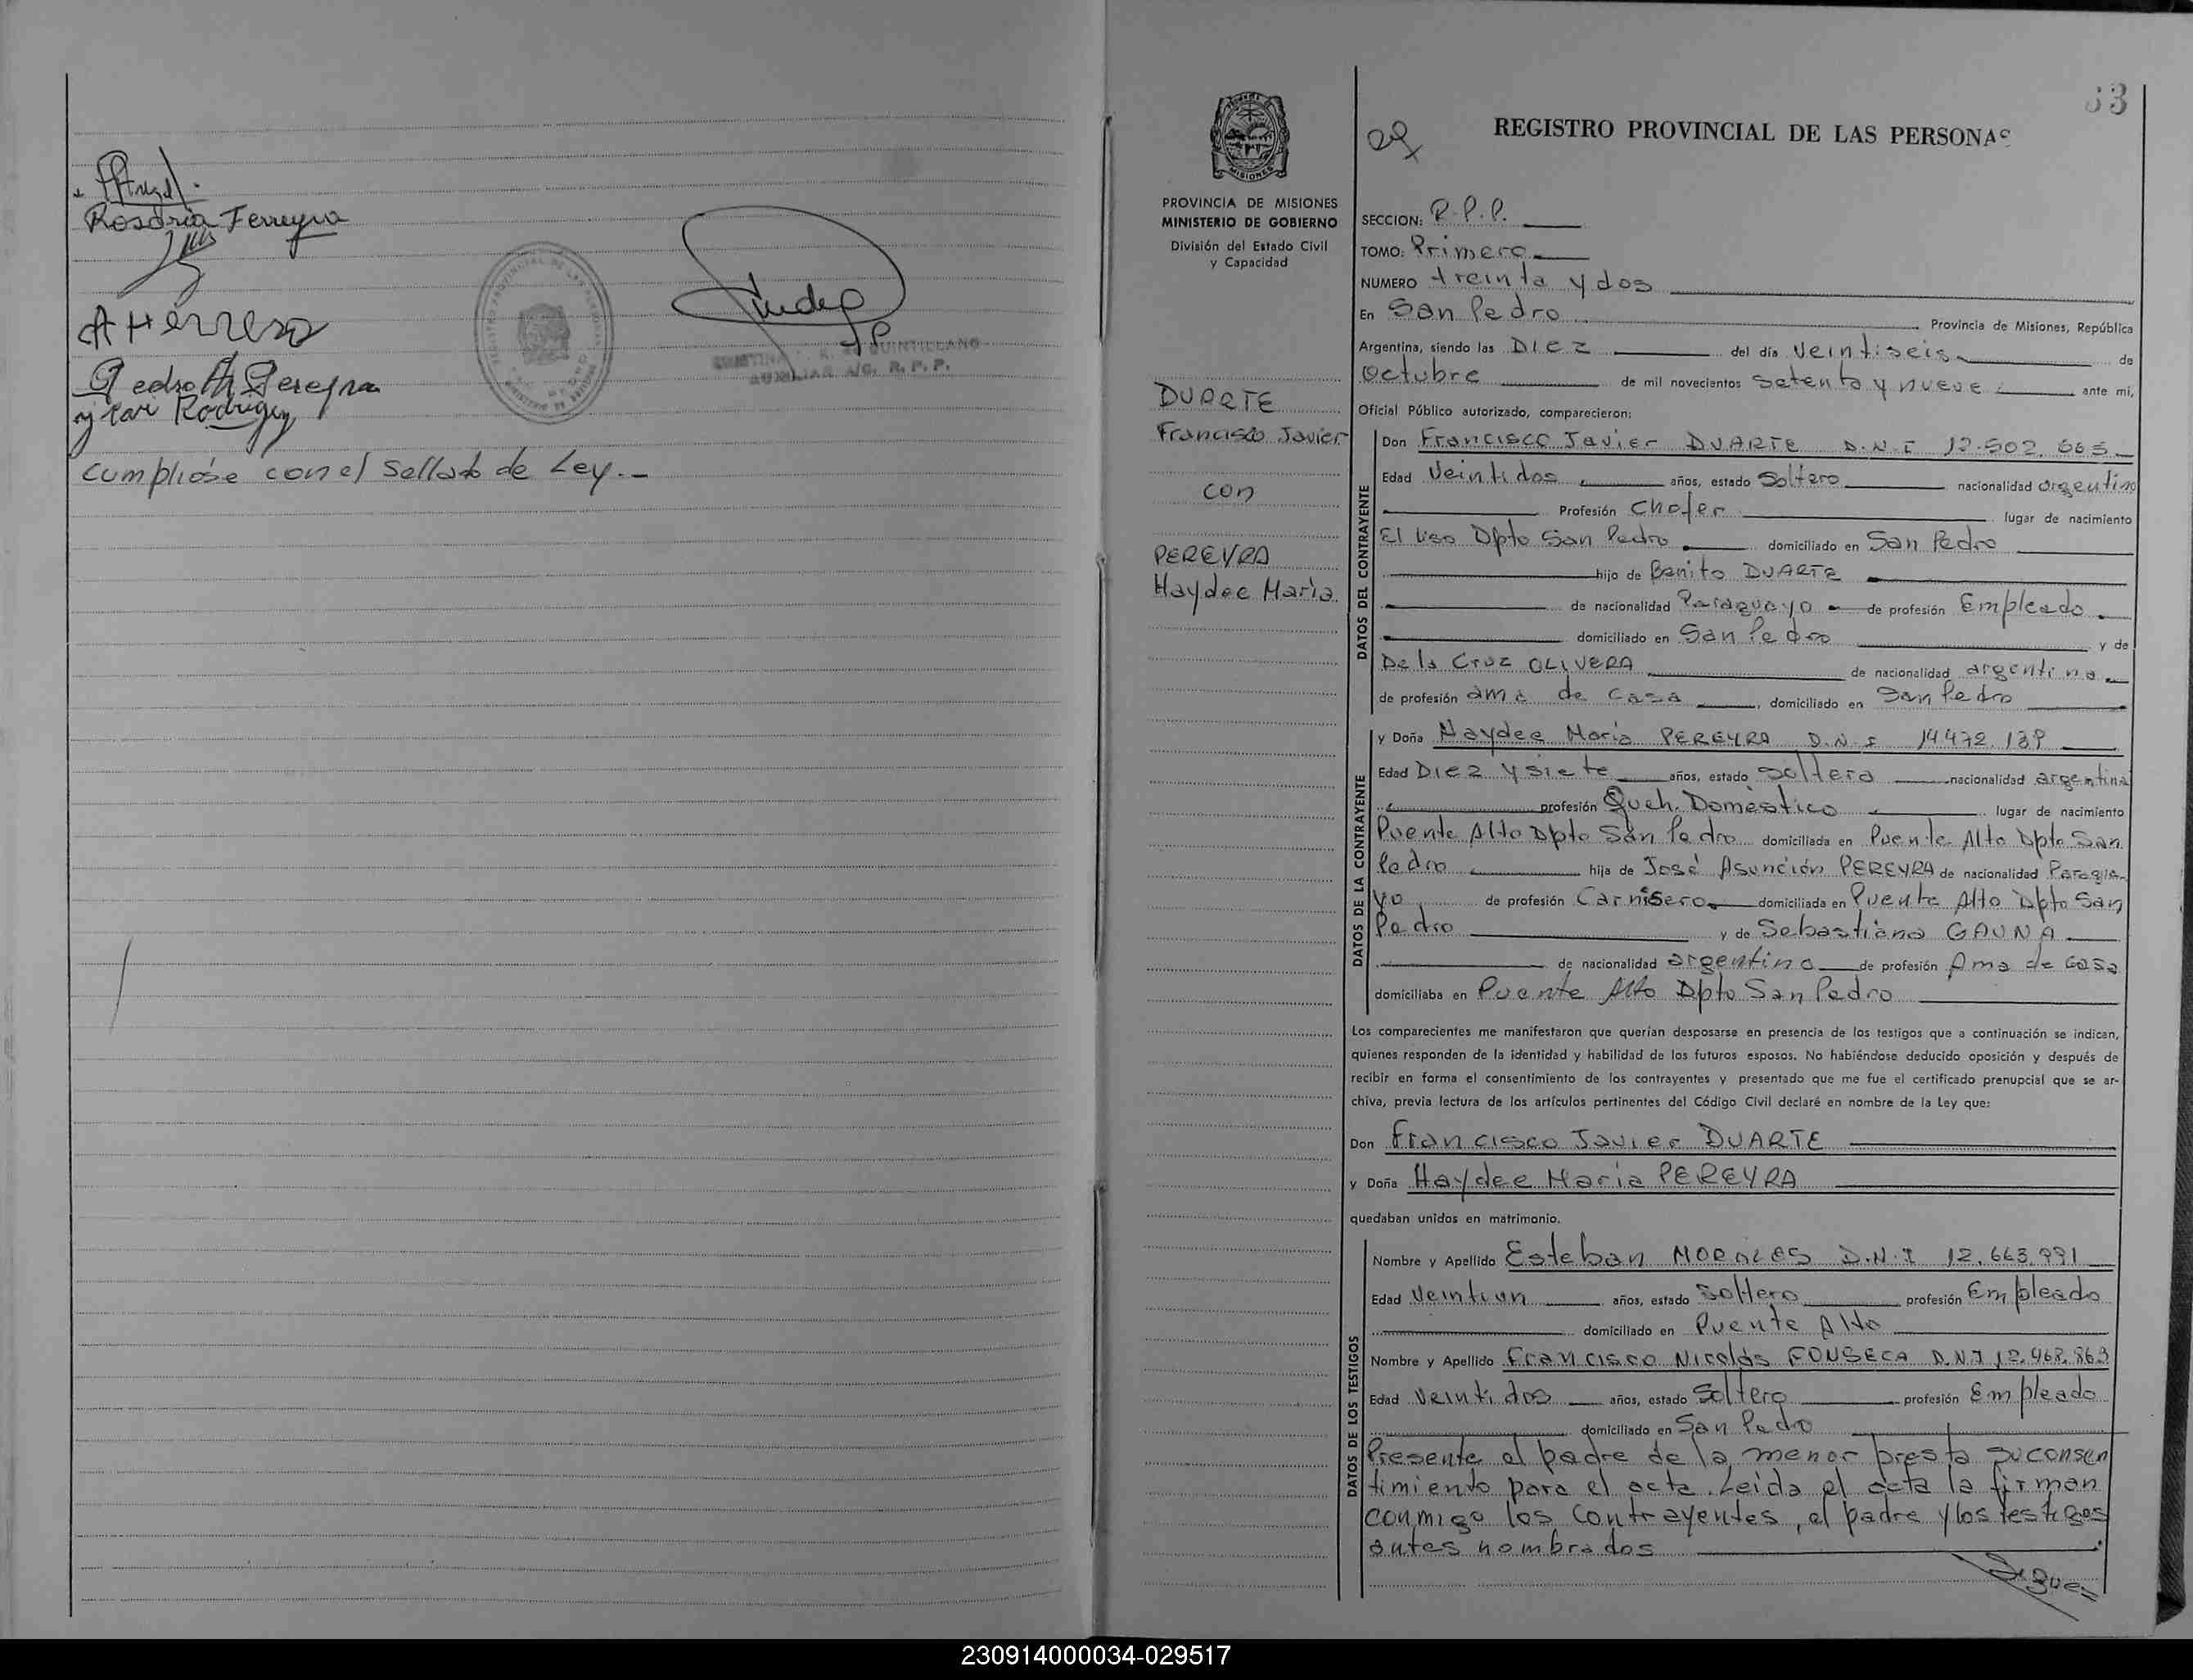 Rosaria Ferreyra
A Herrero
Pedro Pereyra
Rodriguez
Cumplióse con el Sellado de Ley.-
REGISTRO PROVINCIAL DE LAS PERSONAS
AUXILIAR A/C. R. P. P.
33
REGISTRO PROVINCIAL DE LAS PERSONAS
MISIONES
PROVINCIA DE MISIONES
MINISTERIO DE GOBIERNO
División del Estado Civil
y Capacidad
DUARTE
Francisco Javier
con
PEREYRA
Haydee Maria
SECCION: R.P.P.
TOMO: Primero
NUMERO treinta y dos
En San Pedro Provincia de Misiones, República
Argentina, siendo las Diez del día veintiseis de
Octubre de mil novecientos setenta y nueve ante mi,
Oficial Público autorizado, comparecieron:
DATOS DEL CONTRAYENTE
Don Francisco Javier DUARTE D.N.I 12.502.665
Edad Veintidos años, estado Soltero nacionalidad argentino
Profesión Chofer lugar de nacimiento
El Liso Dpto San Pedro domiciliado en San Pedro
hijo de Benito DUARTE
de nacionalidad Paraguayo de profesión Empleado
domiciliado en San Pedro y de
De la Cruz OLIVERA de nacionalidad argentina
de profesión ama de casa, domiciliado en San Pedro
DATOS DE LA CONTRAYENTE
y Doña Haydee Maria PEREYRA D.N.I 14.472.189
Edad Diez y siete años, estado Soltera nacionalidad argentina
profesión Queh. Doméstico lugar de nacimiento
Puente Alto Dpto San Pedro domiciliada en Puente Alto Dpto San
Pedro hija de José Asunción PEREYRA de nacionalidad Paragua-
yo de profesión Carnisero domiciliada en Puente Alto Dpto San
Pedro y de Sebastiana GAUNA
de nacionalidad argentina de profesión Ama de casa
domiciliaba en Puente Alto Dpto San Pedro
Los comparecientes me manifestaron que querían desposarse en presencia de los testigos que a continuación se indican,
quienes responden de la identidad y habilidad de los futuros esposos. No habiéndose deducido oposición y después de
recibir en forma el consentimiento de los contrayentes y presentado que me fue el certificado prenupcial que se ar-
chiva, previa lectura de los artículos pertinentes del Código Civil declaré en nombre de la Ley que:
Don Francisco Javier DUARTE
y Doña Haydee Maria PEREYRA
quedaban unidos en matrimonio.
DATOS DE LOS TESTIGOS
Nombre y Apellido Esteban MORALES D.N.I 12.663.991
Edad Veintiun años, estado Soltero profesión Empleado
domiciliado en Puente Alto
Nombre y Apellido Francisco Nicolás FONSECA D.N.I 12.468.863
Edad Veintidos años, estado Soltero profesión Empleado
domiciliado en San Pedro
Presente el padre de la menor presta su consen
timiento para el acta. Leida el acta la firman
conmigo los contrayentes, el padre y los testigos
antes nombrados
Sigue=
230914000034-029517